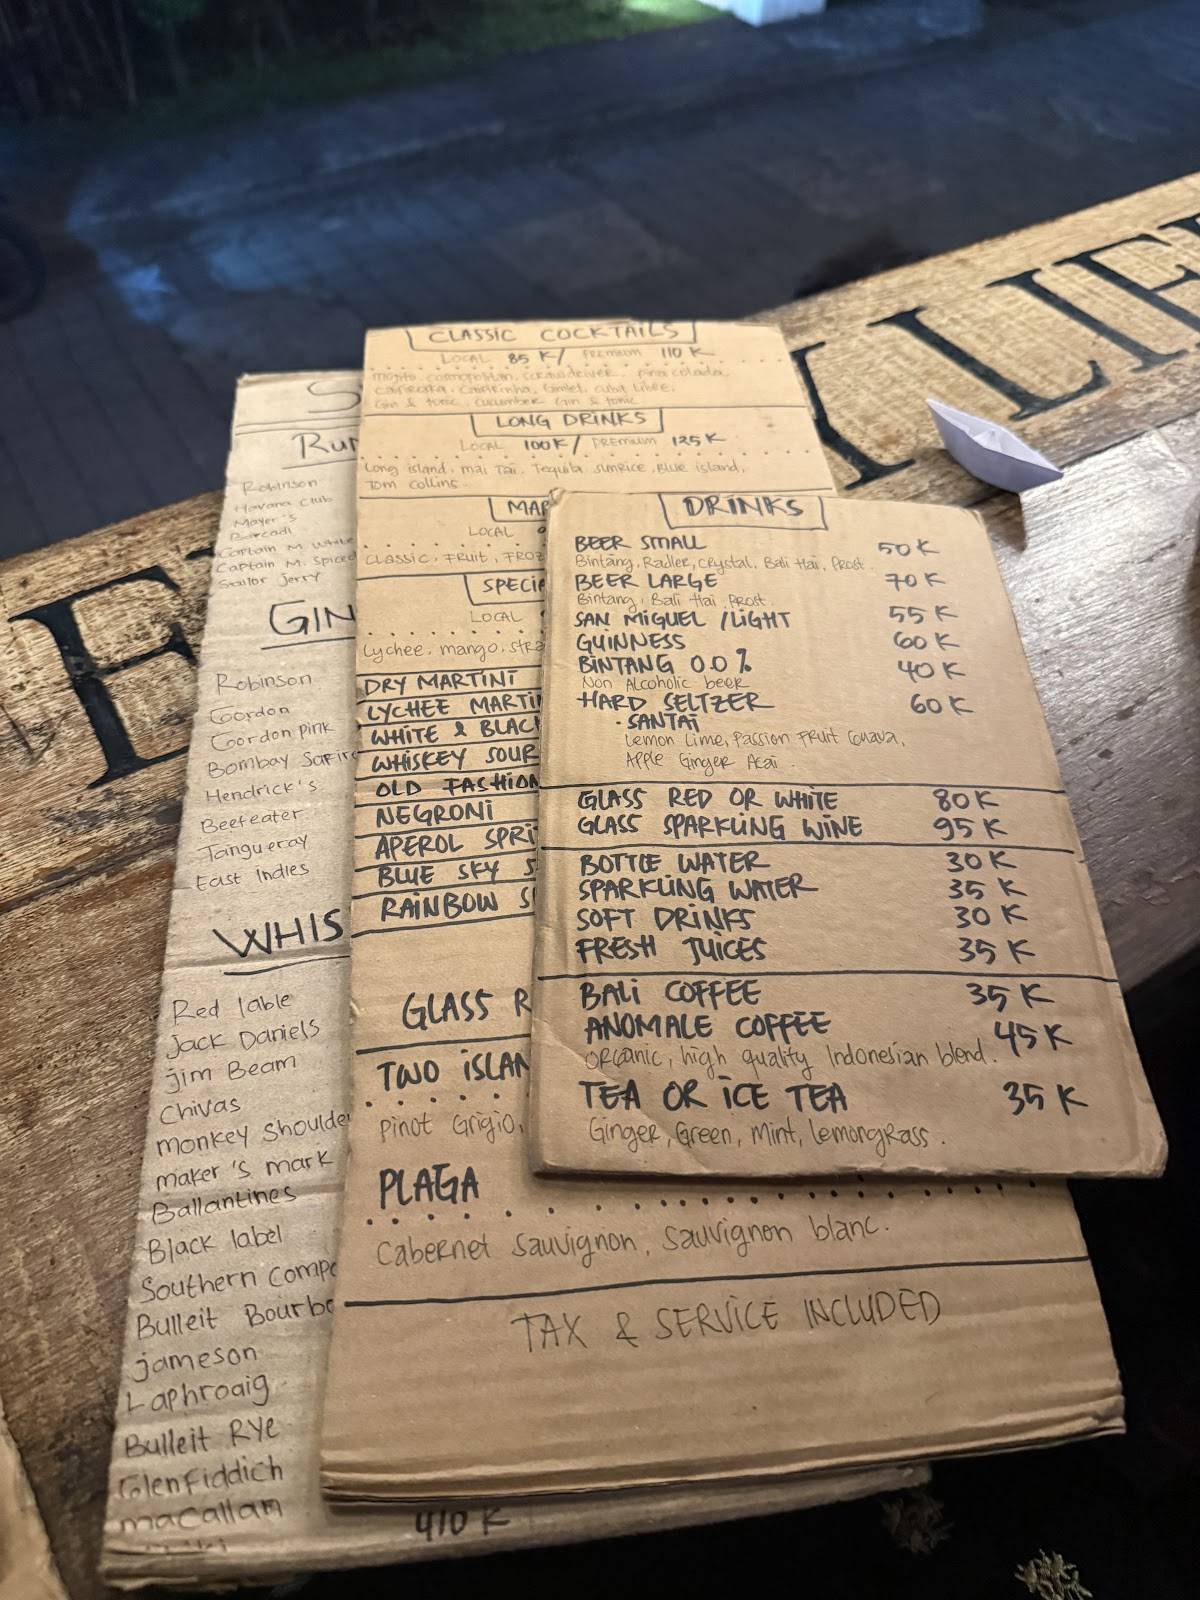 Rum
Robinson
Havana Club
Mayer's
Barcadi
Captain M. White
Captain M. Spiced
Sailor Jerry
GIN
Robinson
Gordon
Gordon pink
Bombay
Hendrick's
Beefeater
Tangueray
East Indies
WHIS
Red lable
Jack Daniels
jim Beam
Chivas
monkey shoulder
maker's mark
Ballantines
Black label
Southern
Bulleit Bourbo
jameson
Laphroaig
Bulleit RYe
GlenFiddich
macallan 410 K
CLASSIC COCKTAILS
LOCAL 85 K/ PREMIUM 110 K
mojito, cosmopolitan, pina colada,
Caipirinha, Gimlet, cuba Libre,
Gin & tonic, cucumber Gin & tonic
LONG DRINKS
LOCAL 100K/ PREMIUM 125K
Long island, mai Tai, Tequila sunrice, Blue island,
Tom collins.
MAR
LOCAL
CLASSIC, FRUIT, FROZ
SPECIA
LOCAL
Lychee, mango, stra
DRY MARTINI
LYCHEE MARTI
WHITE & BLACK
WHISKEY SOUR
OLD FASHION
NEGRONI
APEROL SPRI
BLUE SKY S
RAINBOW S
GLASS R
TWO ISLAN
Pinot Grigio,
PLAGA
Cabernet Sauvignon, Sauvignon blanc.
TAX & SERVICE INCLUDED
DRINKS
BEER SMALL 50 K
Bintang, Radler, crystal, Bali Hai, Prost.
BEER LARGE 70 K
Bintang, Bali Hai, Prost.
SAN MIGUEL /LIGHT 55 K
GUINNESS 60 K
BINTANG 0.0 % 40 K
Non Alcoholic beer
HARD SELTZER 60 K
• SANTAI
Lemon Lime, Passion Fruit Guava,
Apple Ginger Acai.
GLASS RED OR WHITE 80 K
GLASS SPARKLING WINE 95 K
BOTTLE WATER 30 K
SPARKLING WATER 35 K
SOFT DRINKS 30 K
FRESH JUICES 35 K
BALI COFFEE 35 K
ANOMALE COFFEE 45 K
Organic, high quality Indonesian blend.
TEA OR ICE TEA 35 K
Ginger, Green, Mint, Lemongrass.